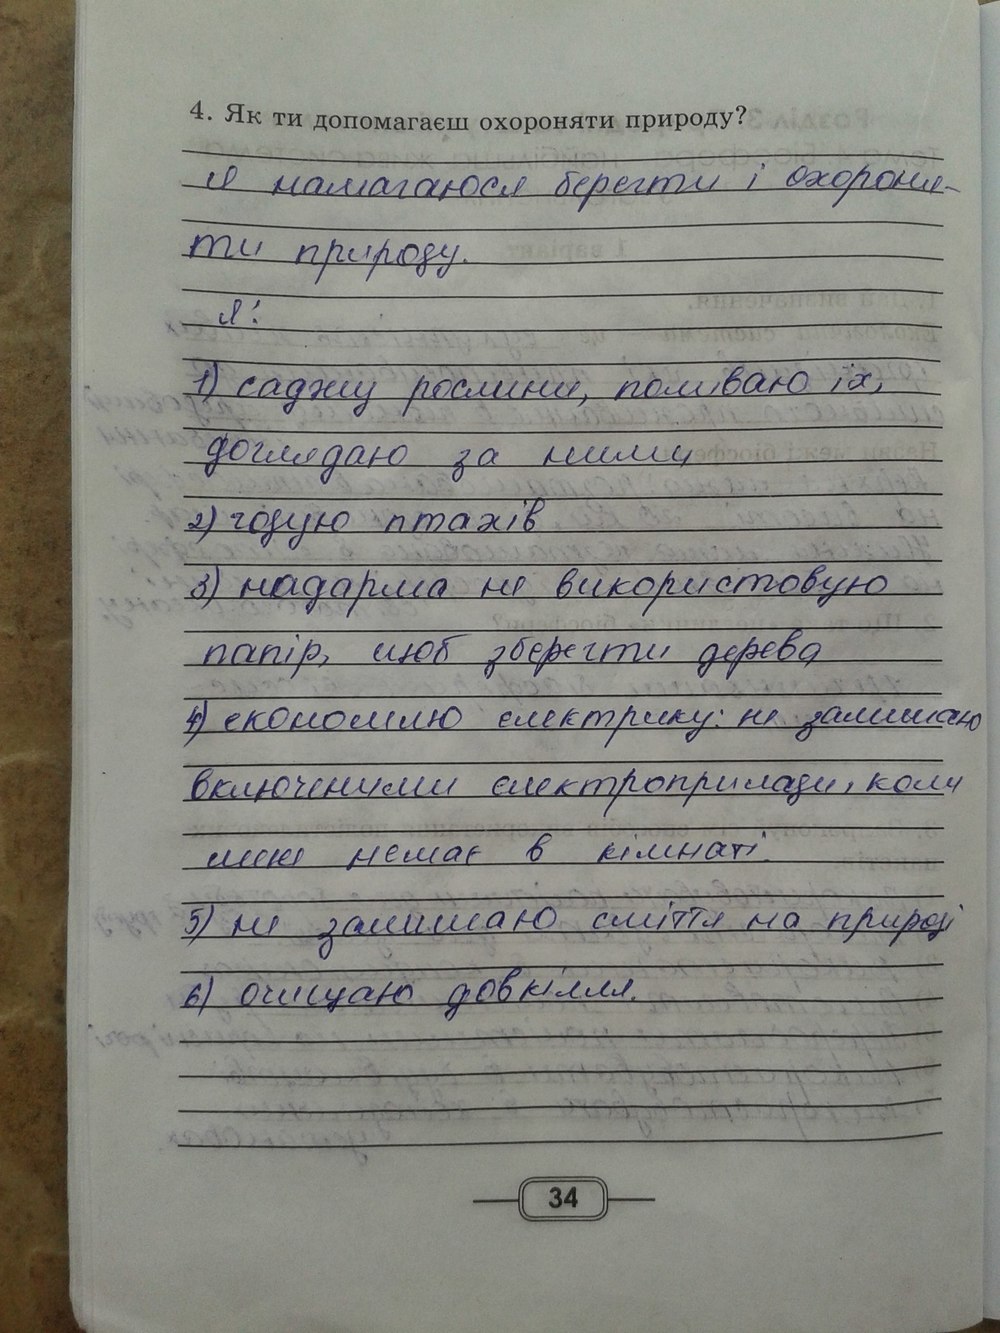 4. Як ти допомагаєш охороняти природу?
Я намагаюся берегти і охороня-
ти природу.
Я:
1) саджу рослини, поливаю їх,
доглядаю за ними
2) годую птахів
3) надарма не використовую
папір, щоб зберегти дерева
4) економлю електрику: не залишаю
включеними електроприлади, коли
мене немає в кімнаті.
5) не залишаю сміття на природі
6) очищаю довкілля.
34